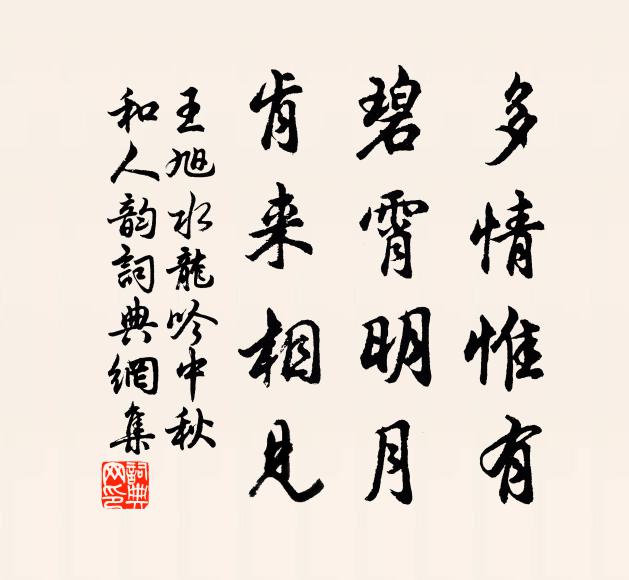 多情惟有
碧霄明月
肯来相見
王旭水龍吟中秋
和人韵詞典網集
詞典
网印